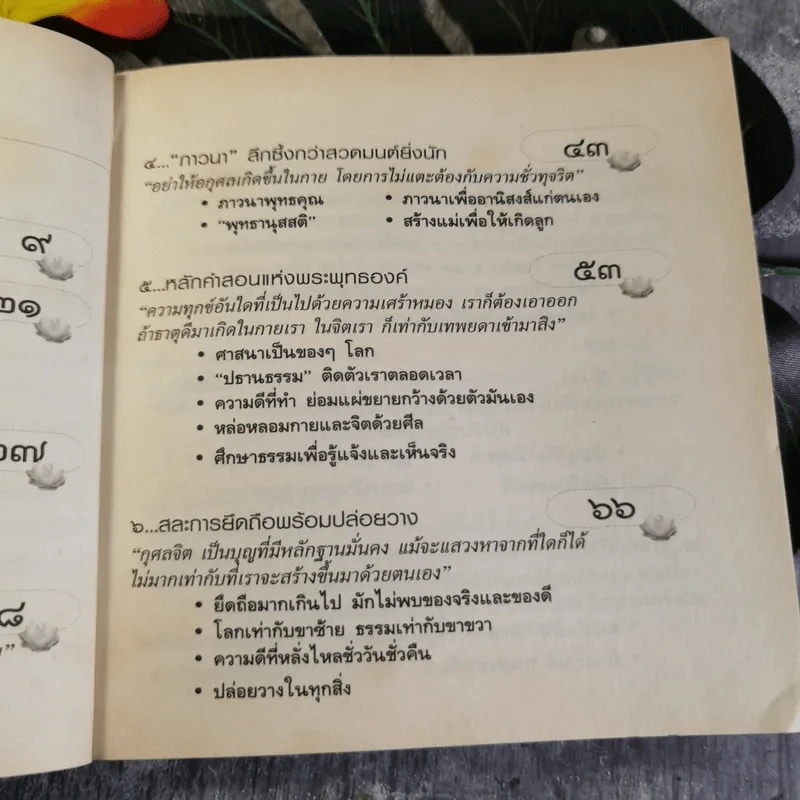 ๙
๒๑
๗
๘
"
๔..."ภาวนา" ลึกซึ้งกว่าสวดมนต์ยิ่งนัก ๔๓
"อย่าให้อกุศลเกิดขึ้นในกาย โดยการไม่แตะต้องกับความชั่วทุจริต"
• ภาวนาพุทธคุณ • ภาวนาเพื่ออานิสงส์แก่ตนเอง
• "พุทธานุสสติ" • สร้างแม่เพื่อให้เกิดลูก
๕...หลักคำสอนแห่งพระพุทธองค์ ๕๓
"ความทุกข์อันใดที่เป็นไปด้วยความเศร้าหมอง เราก็ต้องเอาออก
ถ้าธาตุดีมาเกิดในกายเรา ในจิตเรา ก็เท่ากับเทพยดาเข้ามาสิง"
• ศาสนาเป็นของๆ โลก
• "ปธานธรรม" ติดตัวเราตลอดเวลา
• ความดีที่ทำ ย่อมแผ่ขยายกว้างด้วยตัวมันเอง
• หล่อหลอมกายและจิตด้วยศีล
• ศึกษาธรรมเพื่อรู้แจ้งและเห็นจริง
๖...สละการยึดถือพร้อมปล่อยวาง ๖๖
"กุศลจิต เป็นบุญที่มีหลักฐานมั่นคง แม้จะแสวงหาจากที่ใดก็ได้
ไม่มากเท่ากับที่เราจะสร้างขึ้นมาด้วยตนเอง"
• ยึดถือมากเกินไป มักไม่พบของจริงและของดี
• โลกเท่ากับขาซ้าย ธรรมเท่ากับขาขวา
• ความดีที่หลั่งไหลชั่ววันชั่วคืน
• ปล่อยวางในทุกสิ่ง